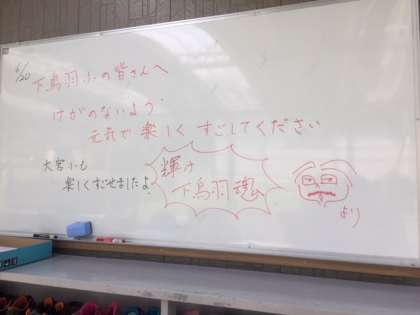 6/20
下鳥羽小の皆さんへ
けがのないよう、
元気で楽しくすごしてください
大宮小も
楽しくすごせましたよ。
輝け
下鳥羽魂
より